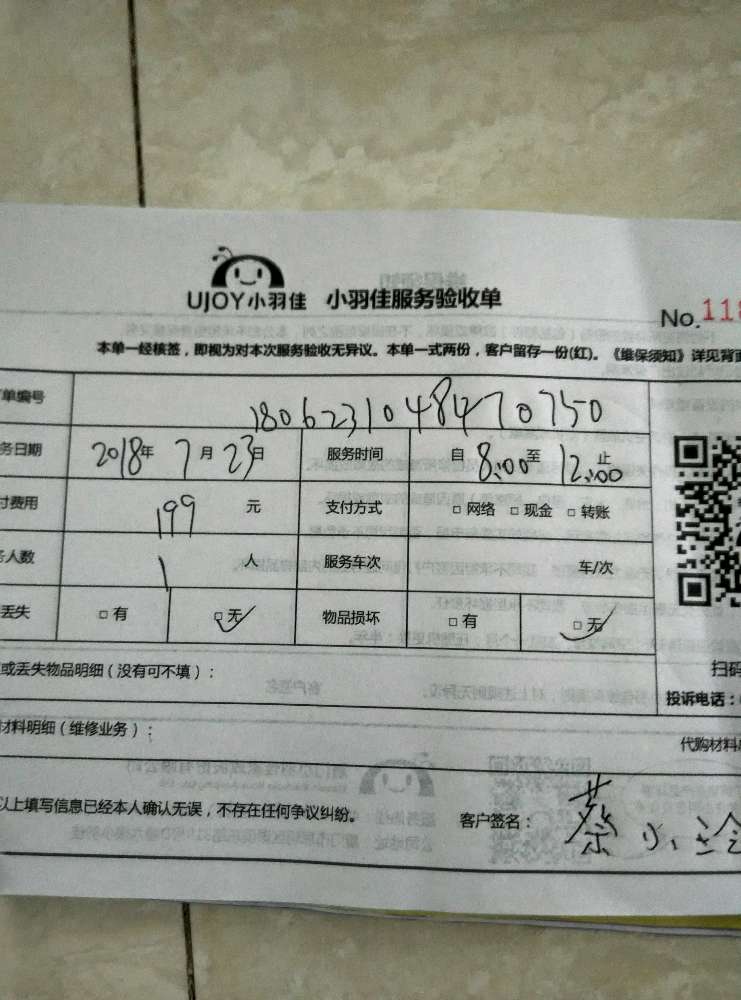 UJOY小羽佳 小羽佳服务验收单
No.118
本单一经核签，即视为对本次服务验收无异议。本单一式两份，客户留存一份(红)。《维保须知》详见背面
单编号 1806231048470750
务日期 2018年 7月 23日 服务时间 自 8:00 至 12:00 止
付费用 199 元 支付方式 □ 网络 □ 现金 □ 转账
人数 1 人 服务车次 车/次
丢失 □ 有 □ 无 物品损坏 □ 有 □ 无
或丢失物品明细（没有可不填）： 扫码
投诉电话：
材料明细（维修业务）： 代购材料
以上填写信息已经本人确认无误，不存在任何争议纠纷。 客户签名： 蔡小